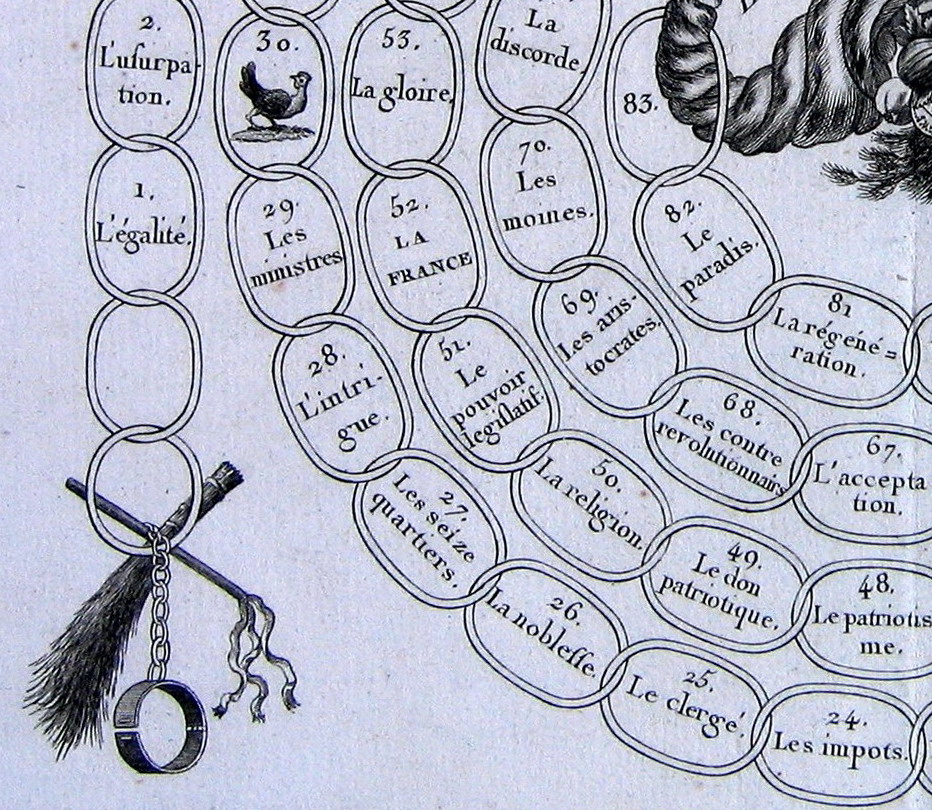 2.
L'usurpa-
tion.
1.
L'égalité.
30.
29.
Les
ministres
28.
L'intri-
gue.
27.
Les seize
quartiers.
26.
La noblesse.
25.
Le clergé.
24.
Les impots.
53.
La gloire.
52.
LA
FRANCE
51.
Le
pouvoir
legislatif.
50.
La religion.
49.
Le don
patriotique.
48.
Le patriotis
me.
La
discorde.
70.
Les
moines.
69.
Les aris-
tocrates.
68.
Les contre
revolutionnairs
67.
L'accepta
tion.
83.
82.
Le
paradis.
81
La régéné=
ration.